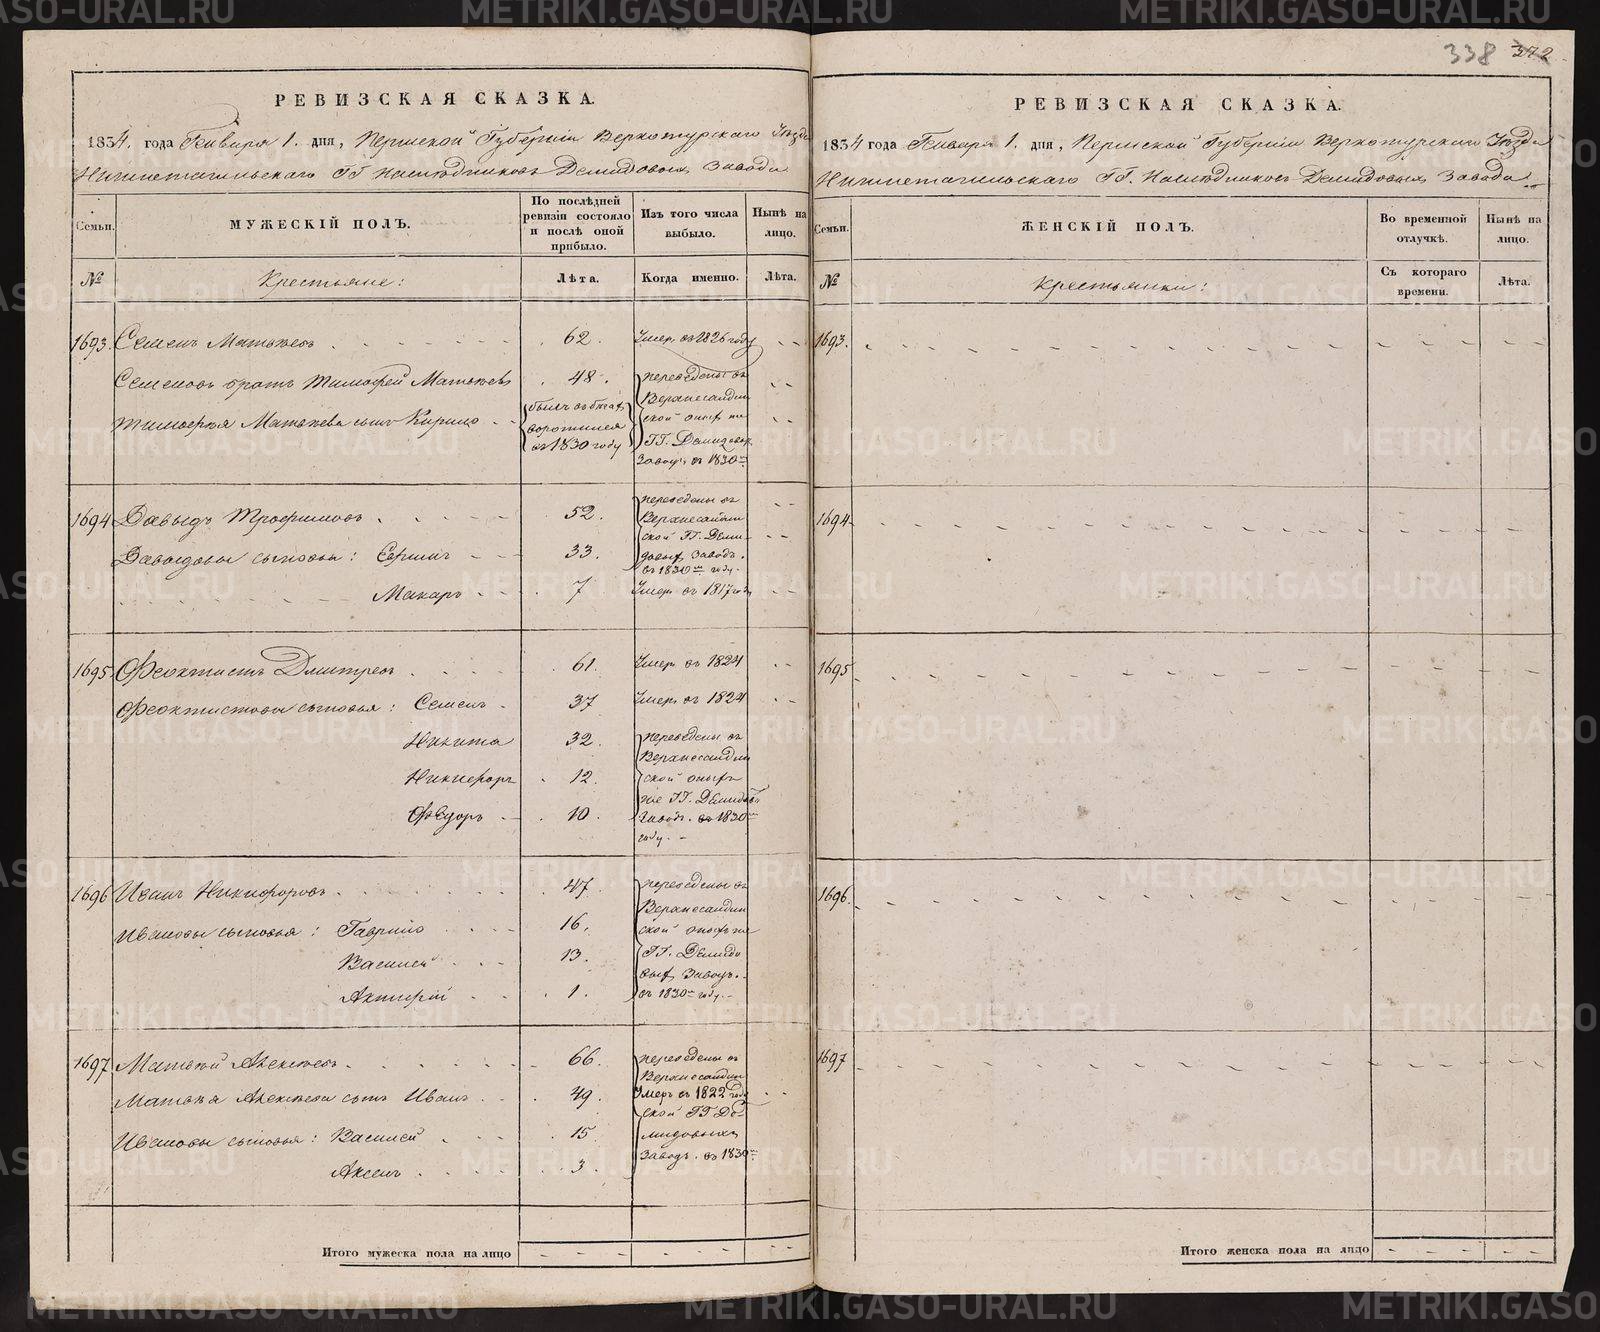 338 372
РЕВИЗСКАЯ СКАЗКА.
1834. года Генваря 1. дня, Пермской Губерніи Верхотурскаго Уѣзда
Нижнетагильскаго ГГ Наслѣдниковъ Демидовыхъ Завода
Семьи.
МУЖЕСКІЙ ПОЛЪ.
По послѣдней
ревизіи состояло
и послѣ оной
прибыло.
Изъ того числа
выбыло.
Нынѣ на
лицо.
№
Крестьяне:
Лѣта.
Когда именно.
Лѣта.
1693. Семенъ Матвѣевъ 62. Умеръ въ 1826 году
Семеновъ братъ Тимофей Матвѣевъ 48. переведены въ
Верхнесалдин
Тимофея Матвѣева сынъ Кирило
въ 1830 году
ской
ГГ. Демидовыхъ
Завод. въ 1830
1694 Давыдъ Трофимовъ 52. переведены въ
Верхнесалдин
ской ГГ. Деми-
Давыдовы сыновья: Ермилъ 33.
довых Заводъ.
въ 1830 году.
Макаръ 7 Умеръ въ 1817 году
1695 Феоктистъ Дмитревъ 61. Умеръ въ 1824
Феоктистовы сыновья: Семенъ 37 Умеръ въ 1824
Никита 32. переведены въ
Верхнесалдин
Никифоръ 12. ской
ГГ. Демидов
Федоръ 10. Завод. въ 1830
году.
1696 Иванъ Никифоровъ 47. переведены въ
Верхнесалдин
Ивановы сыновья: Гаврило 16. ской
Василей 13. ГГ. Демидо
выхъ Заводъ.
1. въ 1830 году.
1697 Матвѣй Алексѣевъ 66. переведены въ
Верхнесалдин
Матвѣя Алексѣева сынъ Иванъ 49. Умеръ въ 1822 году
ской ГГ Де-
Ивановы сыновья: Василей 15 мидовыхъ
Заводъ. въ 1830
Аксенъ 3.
Итого мужеска пола на лицо
РЕВИЗСКАЯ СКАЗКА.
1834 года Генваря 1. дня, Пермской Губерніи Верхотурскаго Уѣзда
Нижнетагильскаго ГГ. Наслѣдниковъ Демидовыхъ Завода
Семьи.
ЖЕНСКІЙ ПОЛЪ.
Во временной
отлучкѣ.
Нынѣ на
лицо.
№
Крестьянки:
Съ котораго
времени.
Лѣта.
1693.
1694
1695
1696.
1697
Итого женска пола на лицо
METRIKI.GASO-URAL.RU